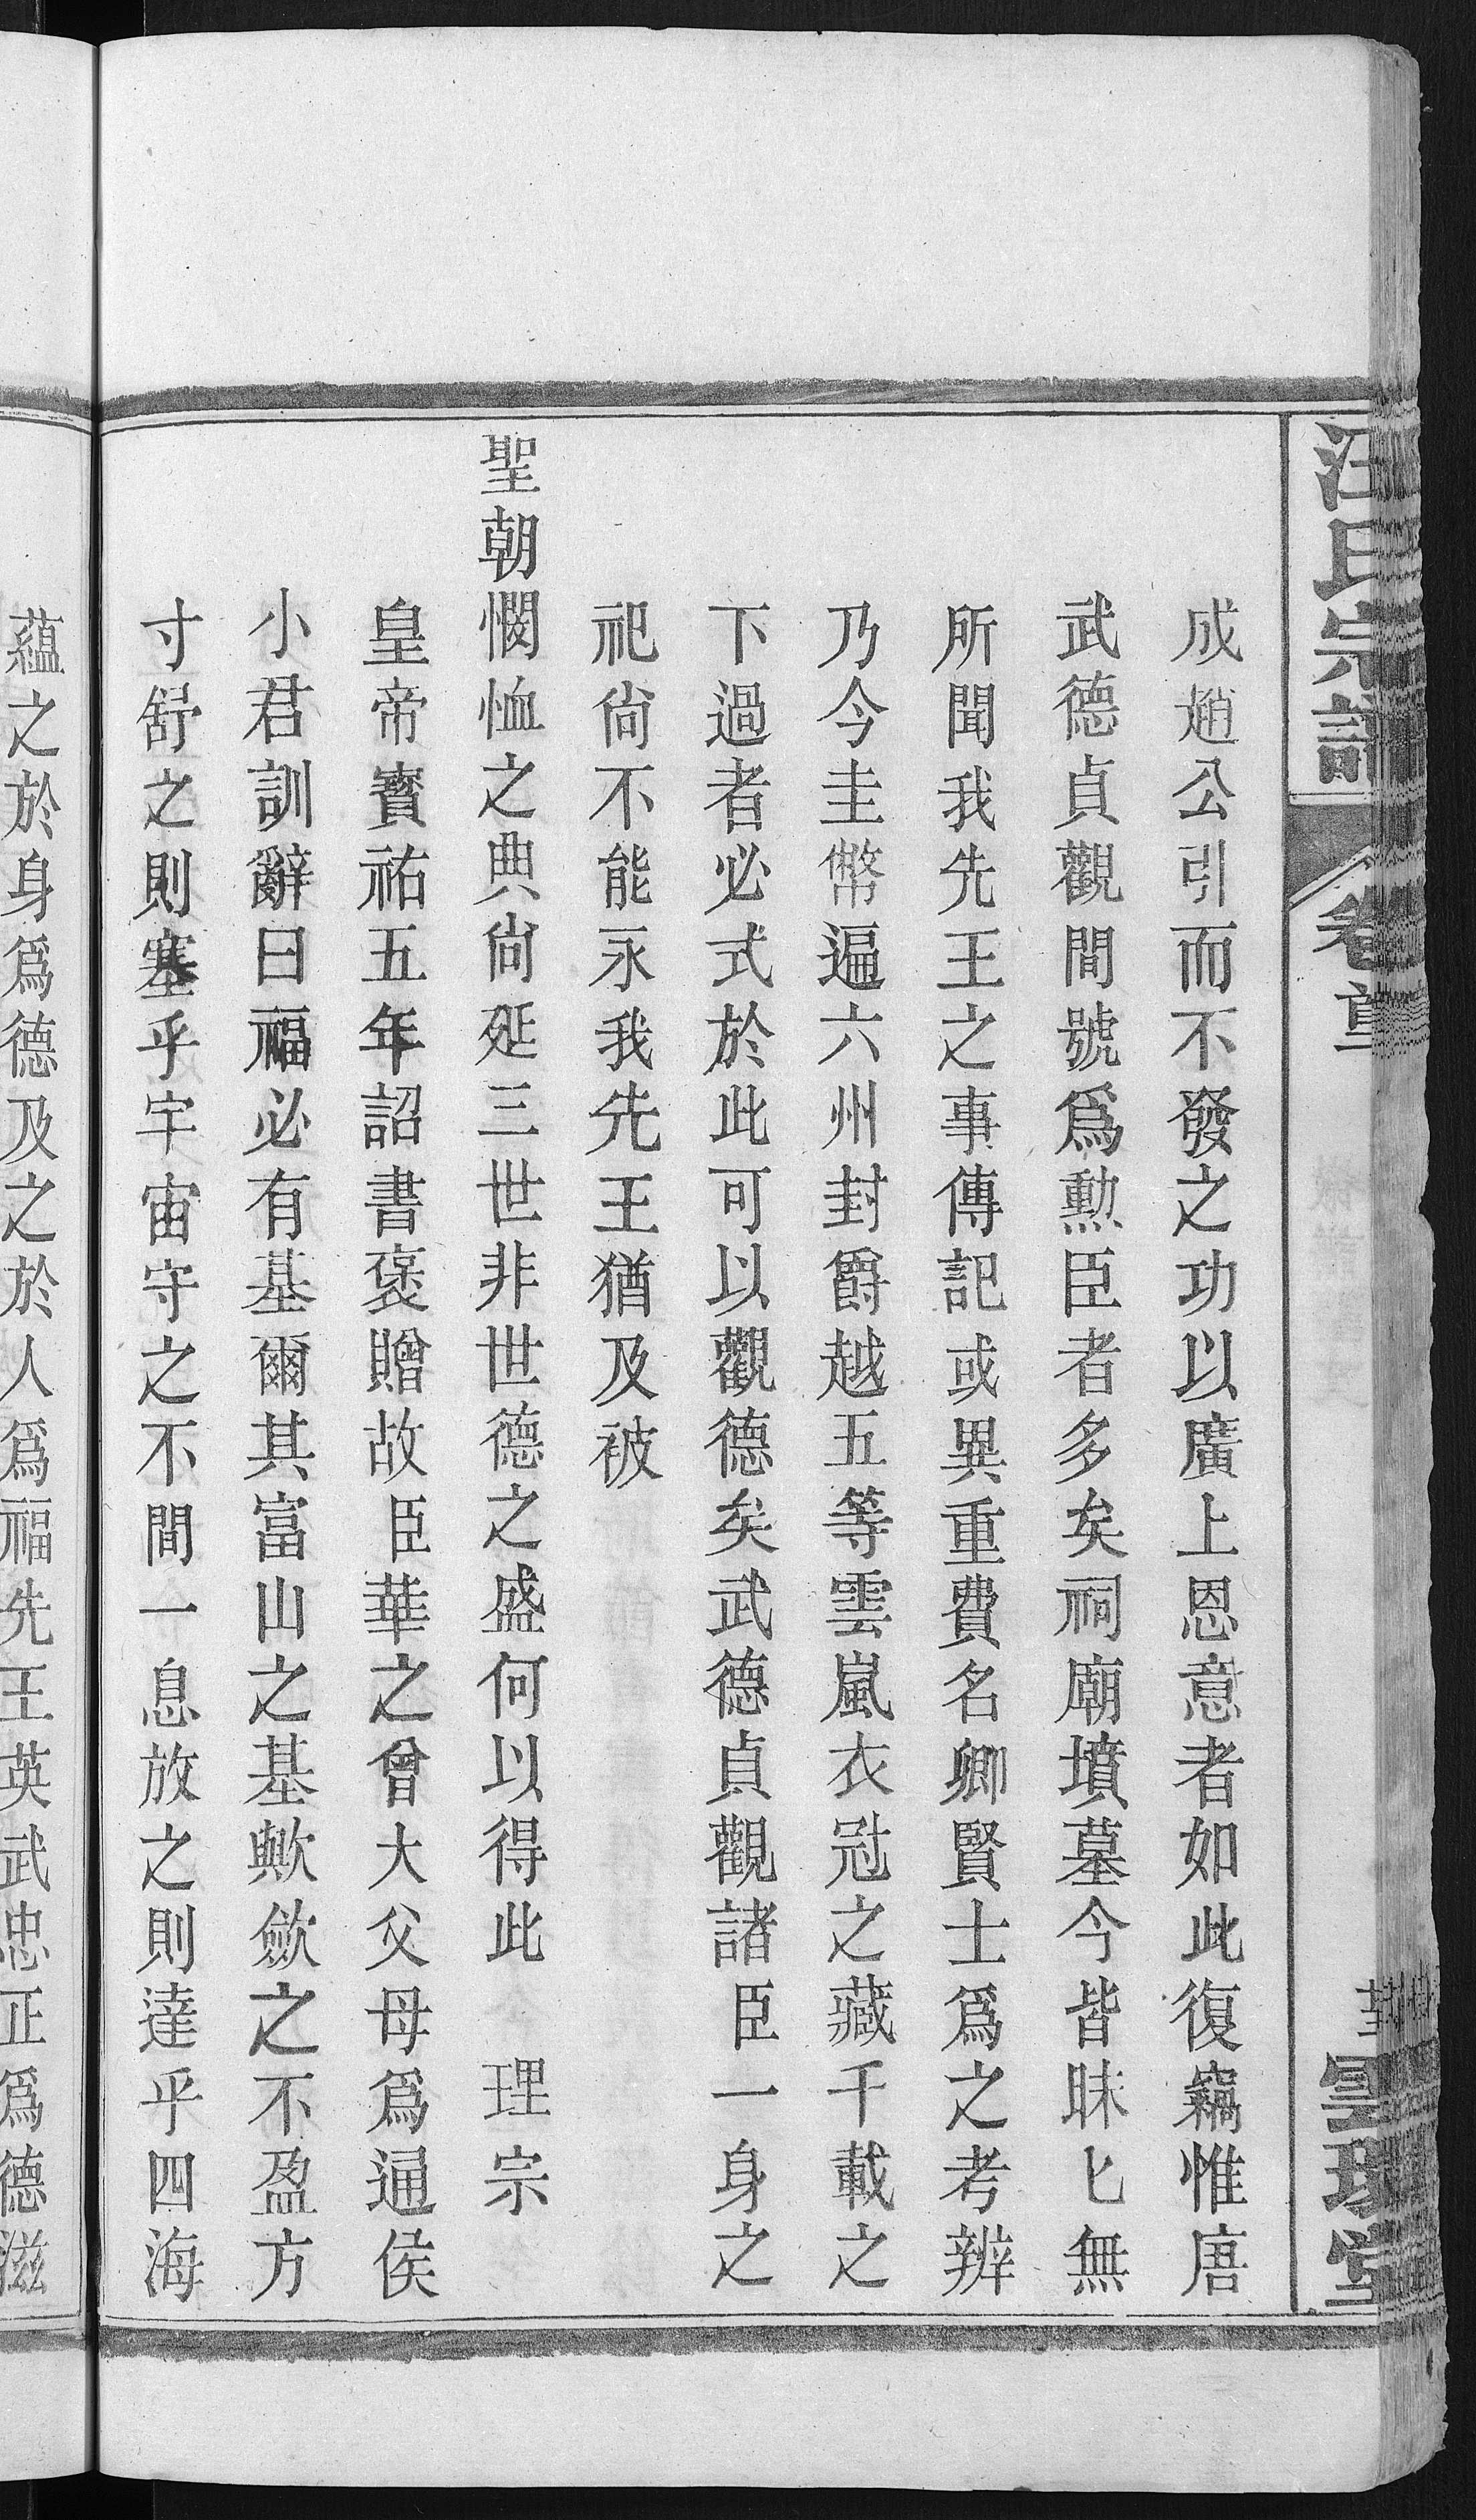 汪氏宗譜
卷首
成趙公引而不發之功以廣上恩意者如此復竊惟唐
武德貞觀間號爲勲臣者多矣祠廟墳墓今皆昧匕無
所聞我先王之事傳記或異重費名卿賢士爲之考辨
乃今圭幣遍六州封爵越五等雲嵐衣冠之藏千載之
下過者必式於此可以觀德矣武德貞觀諸臣一身之
祀尙不能永我先王猶及被
聖朝憫恤之典尙延三世非世德之盛何以得此 理宗
皇帝寳祐五年詔書褒贈故臣華之曾大父母爲通侯
小君訓辭曰福必有基爾其富山之基歟歛之不盈方
寸舒之則塞乎宇宙守之不間一息放之則達乎四海
蘊之於身爲德及之於人爲福先王英武忠正爲德滋